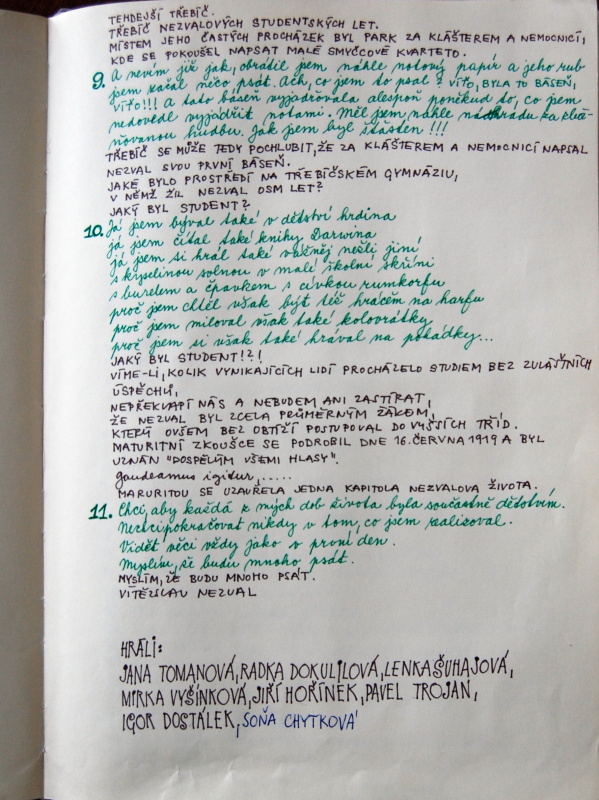 TEHDEJŠÍ TŘEBÍČ.
TŘEBÍČ NEZVALOVÝCH STUDENTSKÝCH LET.
MÍSTEM JEHO ČASTÝCH PROCHÁZEK BYL PARK ZA KLÁŠTEREM A NEMOCNICÍ,
KDE SE POKOUŠEL NAPSAT MALÉ SMYČCOVÉ KVARTETO.
9. A nevím již jak, obrátil jsem náhle notový papír a jeho rub
jsem začal něco psát. Ach, co jsem to psal? VÍTO, BYLA TO BÁSEŇ,
VÍTO!!! A tato báseň vyjadřovala alespoň poněkud to, co jsem
nedovedl vyjádřit notami. Měl jsem náhle náhradu za
hudbu. Jak jsem byl šťasten!!!
TŘEBÍČ SE MŮŽE TEDY POCHLUBIT, ŽE ZA KLÁŠTEREM A NEMOCNICÍ NAPSAL
NEZVAL SVOU PRVNÍ BÁSEŇ.
JAKÉ BYLO PROSTŘEDÍ NA TŘEBÍČSKÉM GYMNÁZIU,
V NĚMŽ ŽIL NEZVAL OSM LET?
JAKÝ BYL STUDENT?
10. Já jsem býval také v dětství hrdina
já jsem čítal také knihy Darwina
já jsem si hrál také vážněj nežli jiní
s kyselinou solnou v malé školní skříni
s burelem a čpavkem s cívkou rumkorfu
proč jsem chtěl však být též hráčem na harfu
proč jsem miloval však také kolovrátky
proč jsem si však také hrával na pohádky...
JAKÝ BYL STUDENT!?!
VÍME-LI, KOLIK VYNIKAJÍCÍCH LIDÍ PROCHÁZELO STUDIEM BEZ ZVLÁŠTNÍCH
ÚSPĚCHŮ,
NEPŘEKVAPÍ NÁS A NEBUDEM ANI ZASTÍRAT,
ŽE NEZVAL BYL ZCELA PRŮMĚRNÝM ŽÁKEM,
KTERÝ OVŠEM BEZ OBTÍŽÍ POSTUPOVAL DO VYŠŠÍCH TŘÍD.
MATURITNÍ ZKOUŠCE SE PODROBIL DNE 16. ČERVNA 1919 A BYL
UZNÁN "DOSPĚLÝM VŠEMI HLASY".
Gaudeamus igitur,.....
MARURITOU SE UZAVŘELA JEDNA KAPITOLA NEZVALOVA ŽIVOTA.
11. Chci, aby každá z mých dob života byla současně dětstvím.
Nechci pokračovat nikdy v tom, co jsem realizoval.
Vidět věci vždy jako v první den.
Myslím, že budu mnoho psát.
MYSLÍM, ŽE BUDU MNOHO PSÁT.
VÍTĚZSLAV NEZVAL
HRÁLI:
JANA TOMANOVÁ, RADKA DOKULILOVÁ, LENKA ŠUHAJOVÁ,
MIRKA VYŠÍNKOVÁ, JIŘÍ HOŘÍNEK, PAVEL TROJAN,
IGOR DOSTÁLEK, SOŇA CHYTKOVÁ